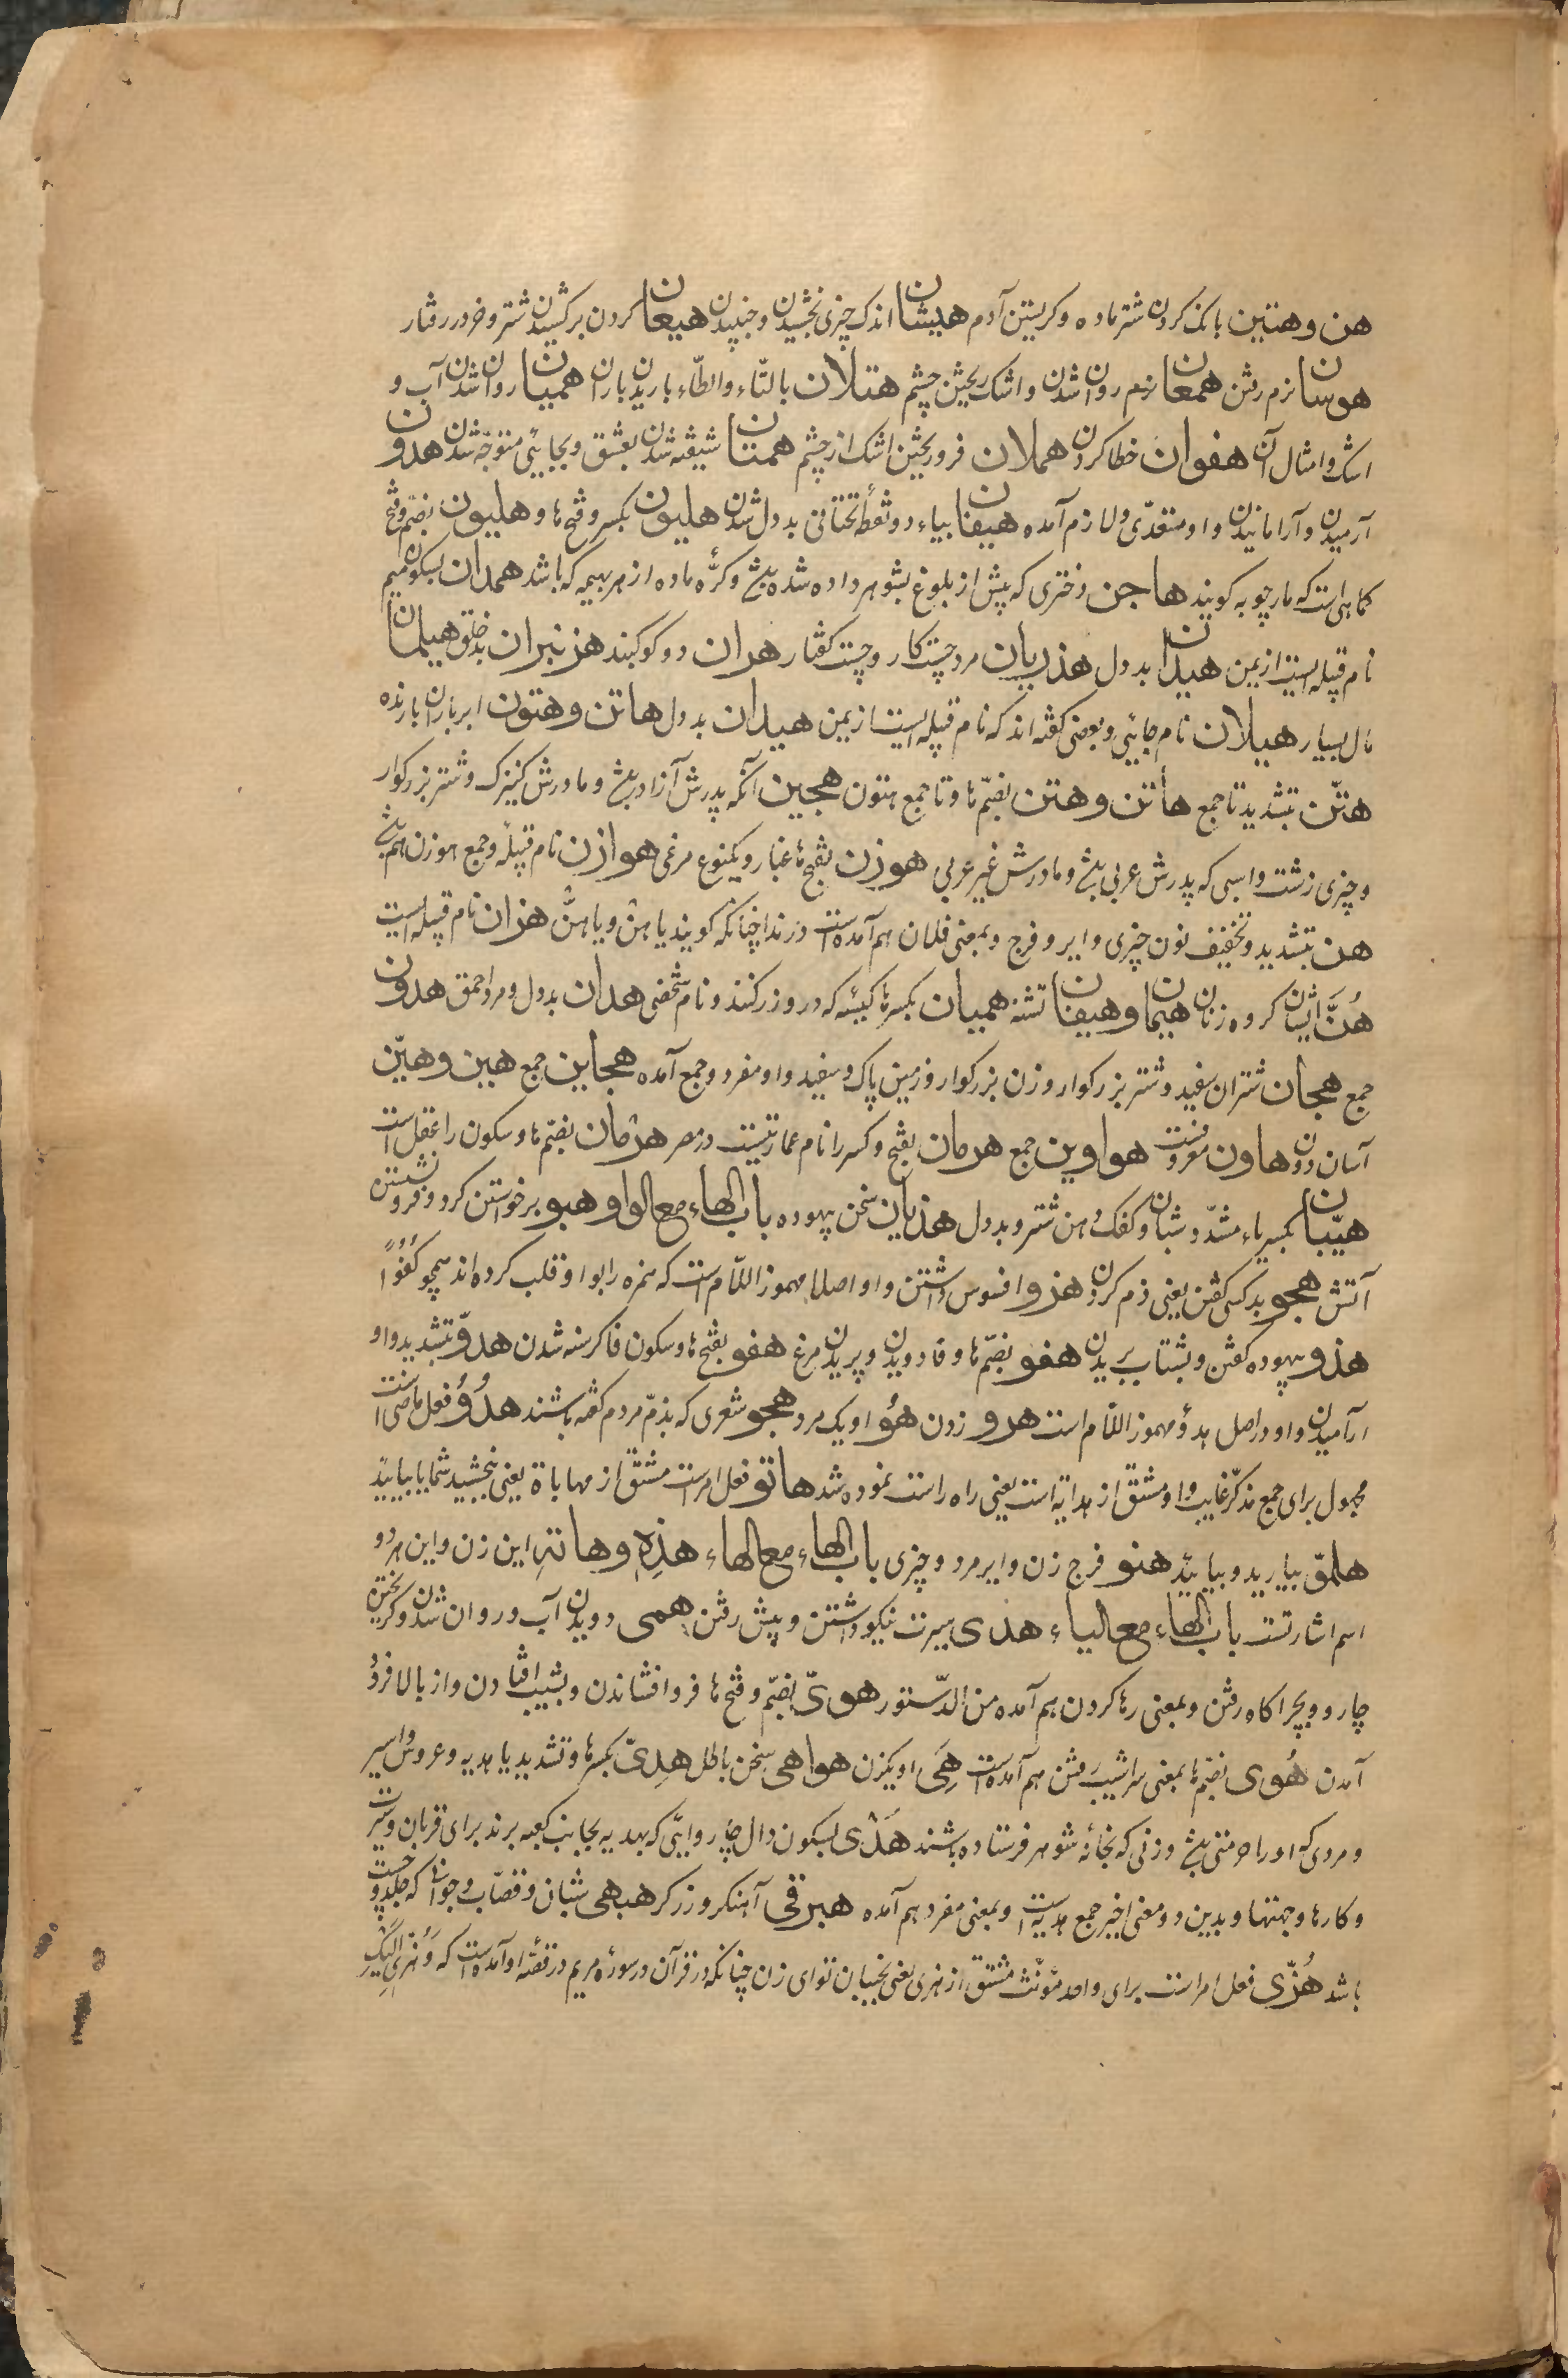 هن وهنین بانک کردن شتر ماده و کریستن آدم هیشان اندک چیزی بخشیدن و جنبیدن هیعان کردن برکشیدن شتر و خر در رفتار
هوسان نرم رفتن همعان نرم روان شدن و اشک ریختن چشم هتلان بالتّاء والطّاء باریدن باران همیان روان شدن آب و
اشک و امثال آن هفوان خطا کردن هملان فرو ریختن اشک از چشم همتان شیفته شدن بعشق و بجایئی متوجّه شدن هدون
آرمیدن و آرامانیدن و او متعدّی و لازم آمده هیفان بیاء دو نقطهٔ تحتانی بد دل شدن هلیون بکسر و فتح ها و هلیون بضمّ و فتح
کیاهی است که مارچوبه کویند هاجن دختری که پیش از بلوغ بشوهر داده شده باشد و کرّهٔ ماده از هر بهیمه که باشد همدان بسکون میم
نام قبیله ایست از یمن هیدان بد دل هذریان مرد چست کار و چست کفتار هراران دو کوکبند هزنبران بد خلق هیلمان
مال بسیار هیلان نام جایئی و بعضی کفته اند که نام قبیله ایست از یمن هیدان بد دل هاتن و هتون ابر باران بارنده
هتّن بتشدید تا جمع هاتن و هتن بضمّ ها و تا جمع هتون هجین آنکه پدرش آزاد باشد و مادرش کنیزک و شتر بزرکوار
و چیزی زشت و اسبی که پدرش عربی باشد و مادرش غیر عربی هوزن بفتح ها غبار و یکنوع مرغی هوازن نام قبیله و جمع هوزن هم باشد
هن بتشدید و تخفیف نون چیزی و ایر و فرج و بمعنی فلان هم آمده است در ندا چنانکه کویند یا هن و یا هنّ هزان نام قبیله ایست
هُنَّ ایشان کروه زنان هیمان و هیفان تشنه همیان بکسر ها کیسه که در و زر کنند و نام شخصی هدان بد دل و مرد احمق هدون
جمع هجان شتران سفید و شتر بزرکوار و زن بزرکوار و زمین پاک و سفید و او مفرد و جمع آمده هجاین جمع هین و هیّن
آسان و دون هاون معروفست هواوین جمع هرمان بفتح و کسر را نام عمارتیست در مصر هرمان بضمّ ها و سکون را عقل است
هیّبان بکسر یاء مشدّد شبان و کفک دهن شتر و بد دل هذیان سخن بیهوده باب الهاء مع الواو هبو برخواستن کرد و فرو نشستن
آتش هجو بد کسی کفتن یعنی ذم کردن هزو افسوس داشتن و او اصلا مهموز اللّام است که همزه را بواو قلب کرده اند همچو کفُوًا
هذو بیهوده کفتن و بشتاب بریدن هفو بضمّ ها و فا دویدن و پریدن مرغ هفو بفتح ها و سکون فا کرسنه شدن هدوّ بتشدید واو
ارآمیدن و او در اصل هدؤ مهموز اللّام است هرو زدن هُوَ او یک مرد هجو شعری که بذمّ مردم کفته باشند هدُوُ فعل ماضی است
مجهول برای جمع مذکّر غایب و او مشتق از هدایة است یعنی راه راست نموده شد هاتو فعل امر است مشتق از مهاباة یعنی ببخشید شمایا بیایید
هلمّو بیارید و بیایید هنو فرج زن و ایر مرد و چیزی باب الهاء مع الهاء هذِهِ و هاتهِ این زن و این هر دو
اسم اشارتست باب الهاء مع الیاء هدی سیرت نیکو داشتن و پیش رفتن همی دویدن آب و روان شدن و کریختن
چاروا و بچراکاه رفتن و بمعنی رها کردن هم آمده من الدّستور هویّ بضمّ و فتح ها فرو افشاندن و بشیب افتادن و از بالا فرود
آمدن هُوی بضمّ ها بمعنی سراشیب رفتن هم آمده است هِیَ او یکزن هواهی سخن باطل هِدیّ بکسر ها و تشدید یا هدیه و عروس و اسیر
و مردی که او را حرمتی باشد و زنی که بخانهٔ شوهر فرستاده باشند هَدْی بسکون دال چاروایئی که بهدیه بجانب کعبه برند برای قربان و سیرت
و کارها و جهتها و بدین دو معنی اخیر جمع هدیه است و بمعنی مفرد هم آمده هبرقی آهنکر و زرکر هبهی شبان و قصّاب و جوانی که جلد و چست
باشد هُزّی فعل امر است برای واحد مؤنّث مشتق از هزی یعنی بجنبان تو ای زن چنانکه در قرآن در سورهٔ مریم در قصّهٔ او آمده است که وَهُزّی الیک